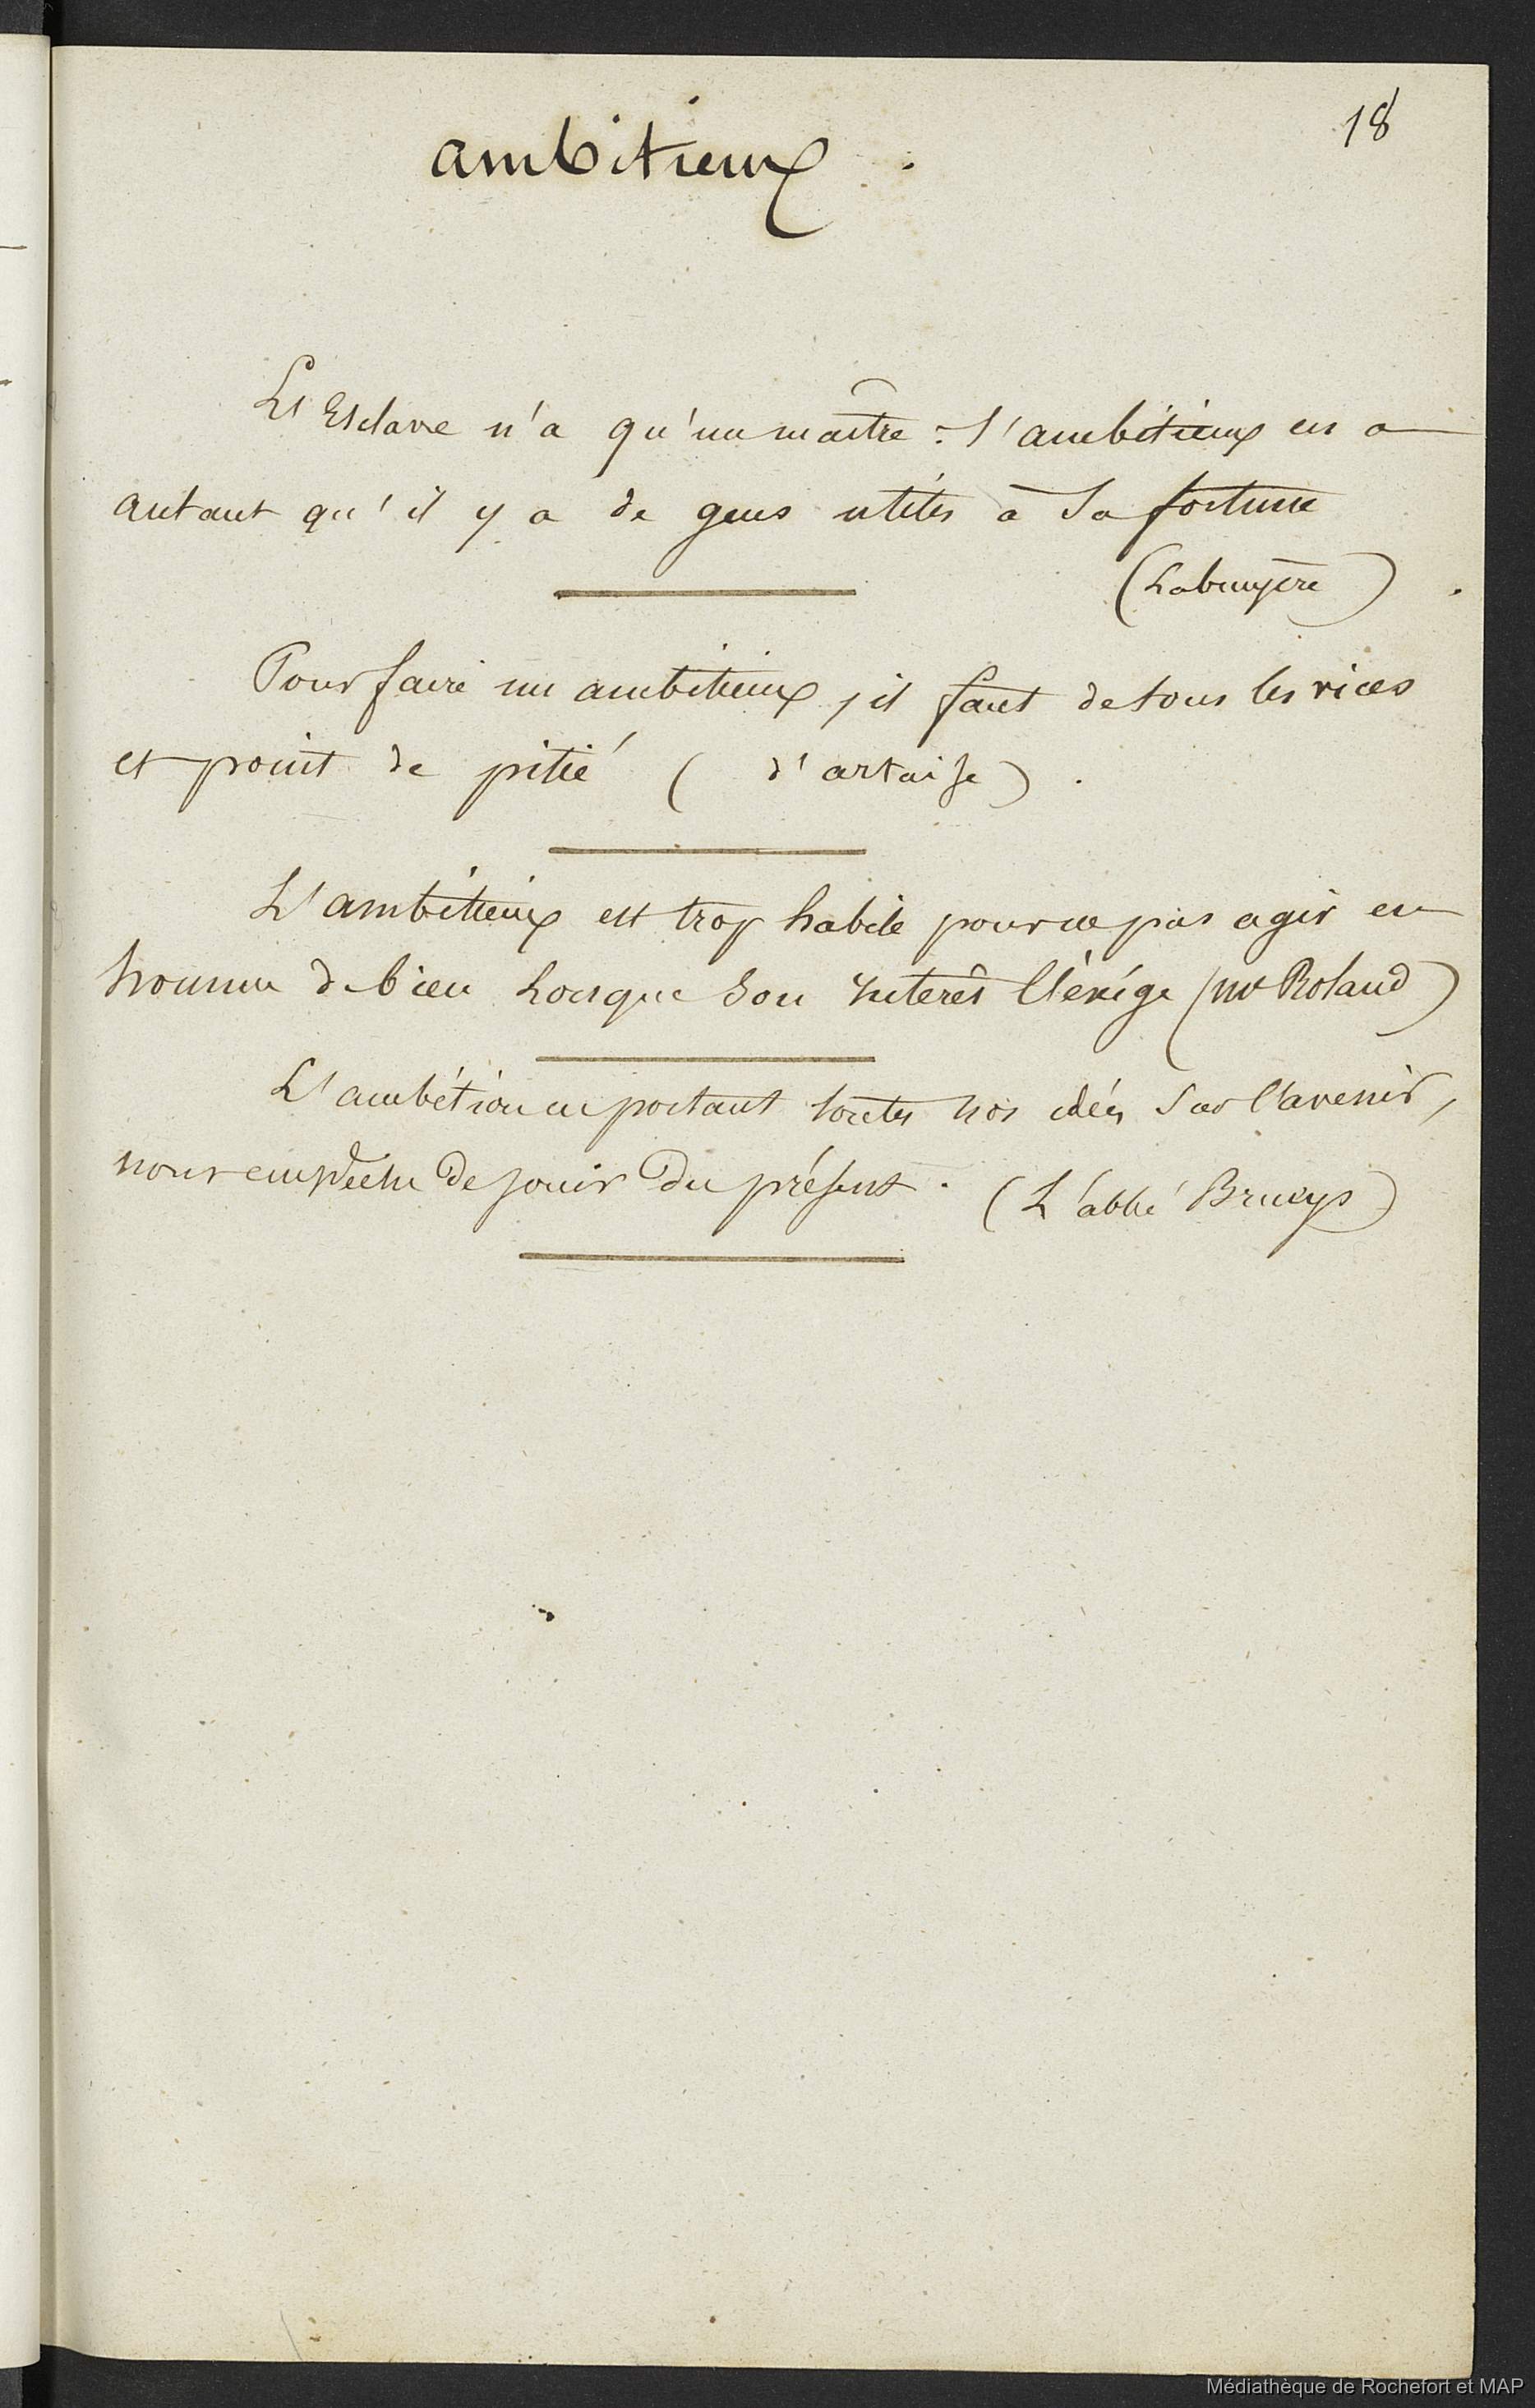 18
ambitieux .
L'Esclave n'a qu'un maître : l'ambitieux en a
autant qu'il y a de gens utiles à sa fortune
(Labruyère) .
Pour faire un ambitieux, il faut de tous les vices
et point de pitié ( d'artaise ) .
L'ambitieux est trop habile pour ne pas agir en
homme de bien Lorsque son intérêt l'éxige (me Roland)
L'ambition en portant toutes nos idées sur l'avenir,
nous empêche de jouir du présent . (L'abbé Brueys)
Médiathèque de Rochefort et MAP